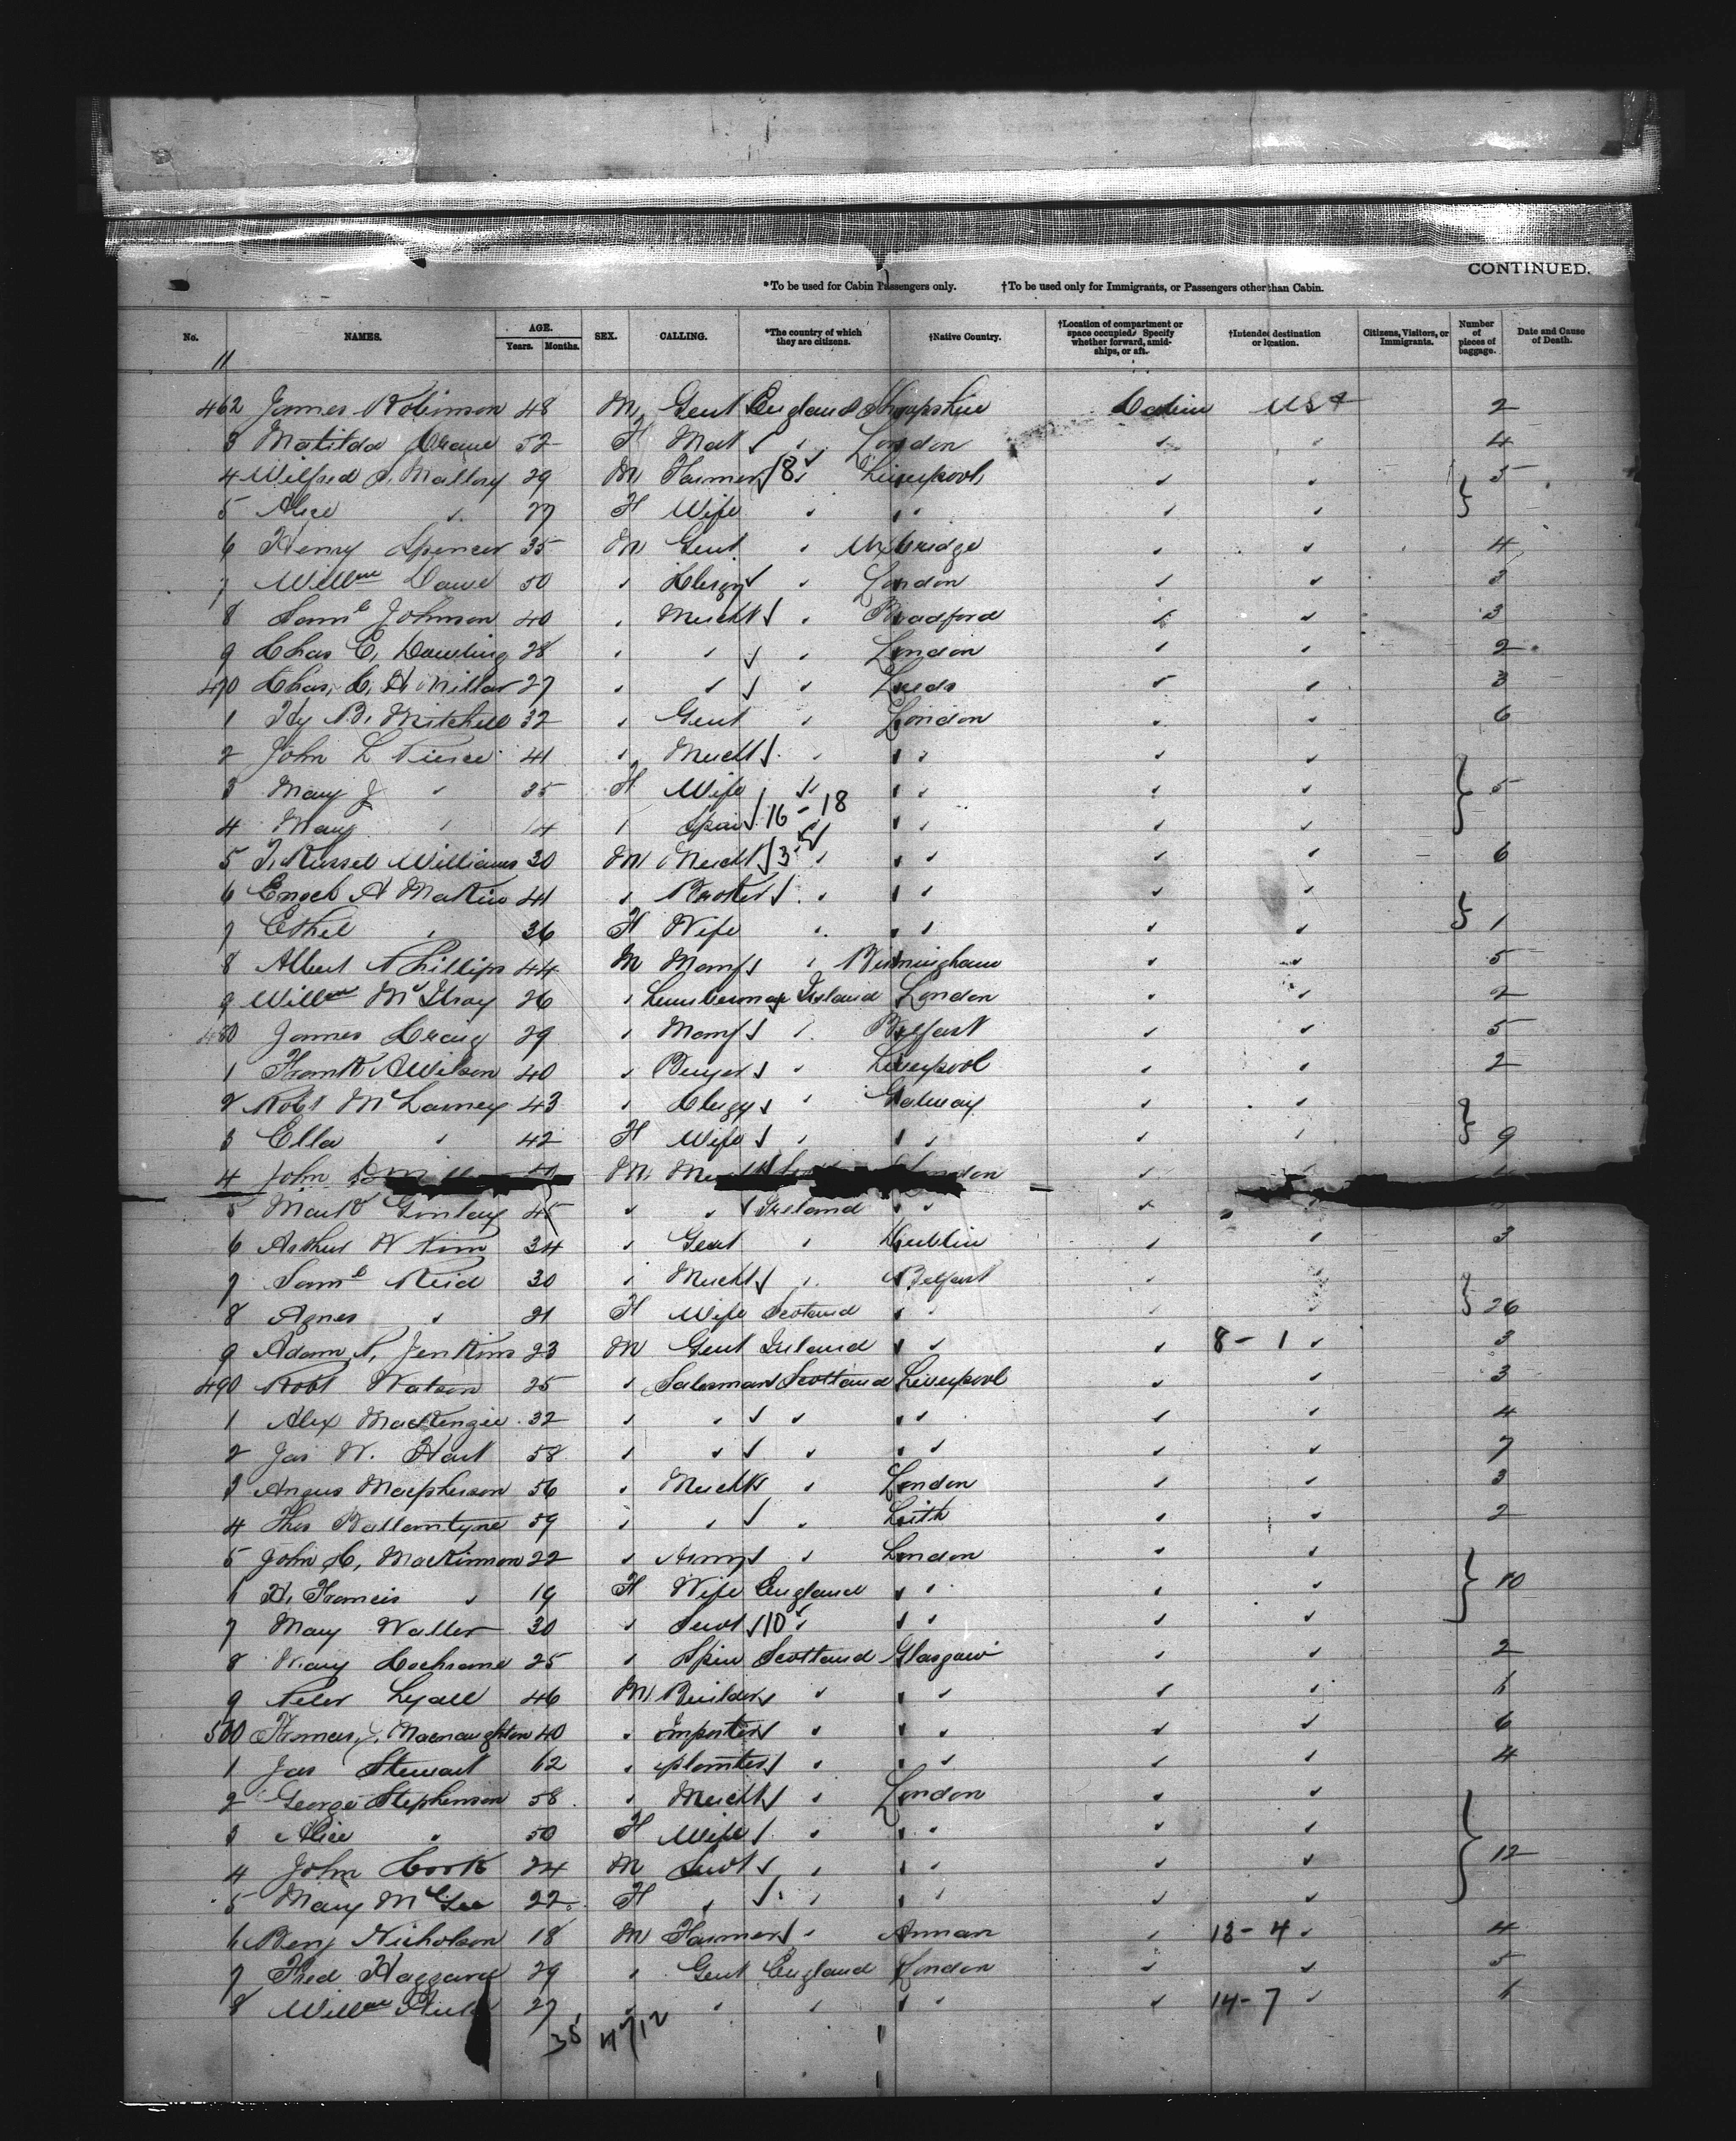 CONTINUED.
*To be used for Cabin Passengers only. †To be used only for Immigrants, or Passengers other than Cabin.
No. NAMES. AGE. Years. Months. SEX. CALLING. *The country of which they are citizens. †Native Country. †Location of compartment or space occupied. Specify whether forward, amidships, or aft. †Intended destination or location. Citizens, Visitors, or Immigrants. Number of pieces of baggage. Date and Cause of Death.
11
462 James Robinson 48 M Gent England Shropshire Cabin USA 2
3 Matilda 52 F London 4
4 Wilfred Mallory 29 M Farmer 18 Liverpool 5
5 Alice 27 F Wife
6 Henry Spencer 35 M Gent Uxbridge 4
7 Willm Dawe 50 Clergy London 3
8 Saml Johnson 40 Mercht Bradford 3
9 Chas E. Dowling 28 London 2
470 Chas. C. H. Millar 27 Leeds 3
1 Hy B. Mitchell 32 Gent London 6
2 John L Pierce 41 Mercht
3 Mary J 35 F Wife 5
4 Mary 14 Spin 16-18
5 T. Russel Williams 30 M Mercht 3 6
6 Enoch A Makin 41 Broker
7 Ethel 36 F Wife 1
8 Albert Phillips 44 M Manfr Birmingham 5
9 Willm McIlroy 26 Lumberman Ireland London 2
480 James Craig 29 Manfr Belfast 5
1 Frank A Wilson 40 Buyer Liverpool 2
2 Robt 43 Clergy Galway
3 Ella 42 F Wife 9
4 John M. London
5 Mark Ginlay 45 Ireland
6 Arthur W 34 Gent Dublin 3
7 Saml Reid 30 Mercht Belfast
8 Agnes 21 F Wife Scotland 26
9 Adam P. Jenkins 23 M Gent Ireland 8-1 3
490 Robt Watson 25 Salesman Scotland Liverpool 3
1 Alex MacKenzie 32 4
2 Jas W. Hart 58 7
3 Angus Macpherson 56 Mercht London 3
4 Thos Ballantyne 59 Leith 2
5 John C. MacKinnon 22 Army London
6 H. Francis 19 F Wife England 10
7 Mary Waller 30 Servt 10
8 Mary Cochrane 25 Spin Scotland Glasgow 2
9 Peter Lyall 46 M Builder 1
500 Macnaughton 40 importer 6
1 Jas Stewart 62 planter 4
2 George Stephenson 58 Mercht London
3 Alice 50 F Wife
4 John Cook 24 M Servt 12
5 Mary McGee 22 F
6 Benj Nicholson 18 M Farmer Annan 13-4 4
7 Fred Haggard 29 Gent England London 5
8 Willm 27 14-7 1
35 47/12